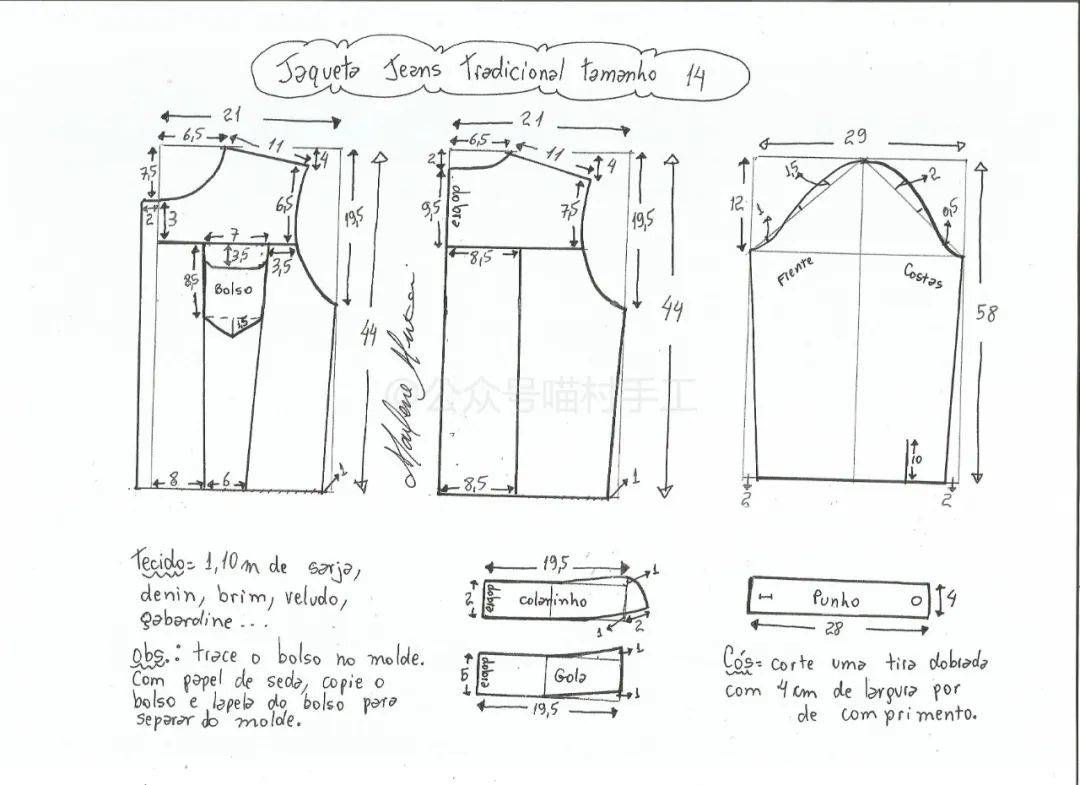 Jaqueta Jeans Tradicional tamanho 14
21
6,5
11
4
7,5
2
3
6,5
19,5
7
3,5
3,5
8,5
Bolso
1,5
44
8
6
1
21
6,5
11
4
2
9,5
dobra
7,5
19,5
8,5
44
8,5
1
29
12
1,5
2
1
0,5
Frente
Costas
58
10
2
2
@公众号喵村手工
Tecido= 1,10m de sarja,
denin, brim, veludo,
gabardine...
obs.: trace o bolso no molde.
Com papel de seda, copie o
bolso e lapela do bolso para
separar do molde.
19,5
1
2
dobra
colarinho
1
2
5
dobra
Gola
1
1
19,5
Punho
4
28
Cós= corte uma tira dobrada
com 4 cm de largura por
de comprimento.